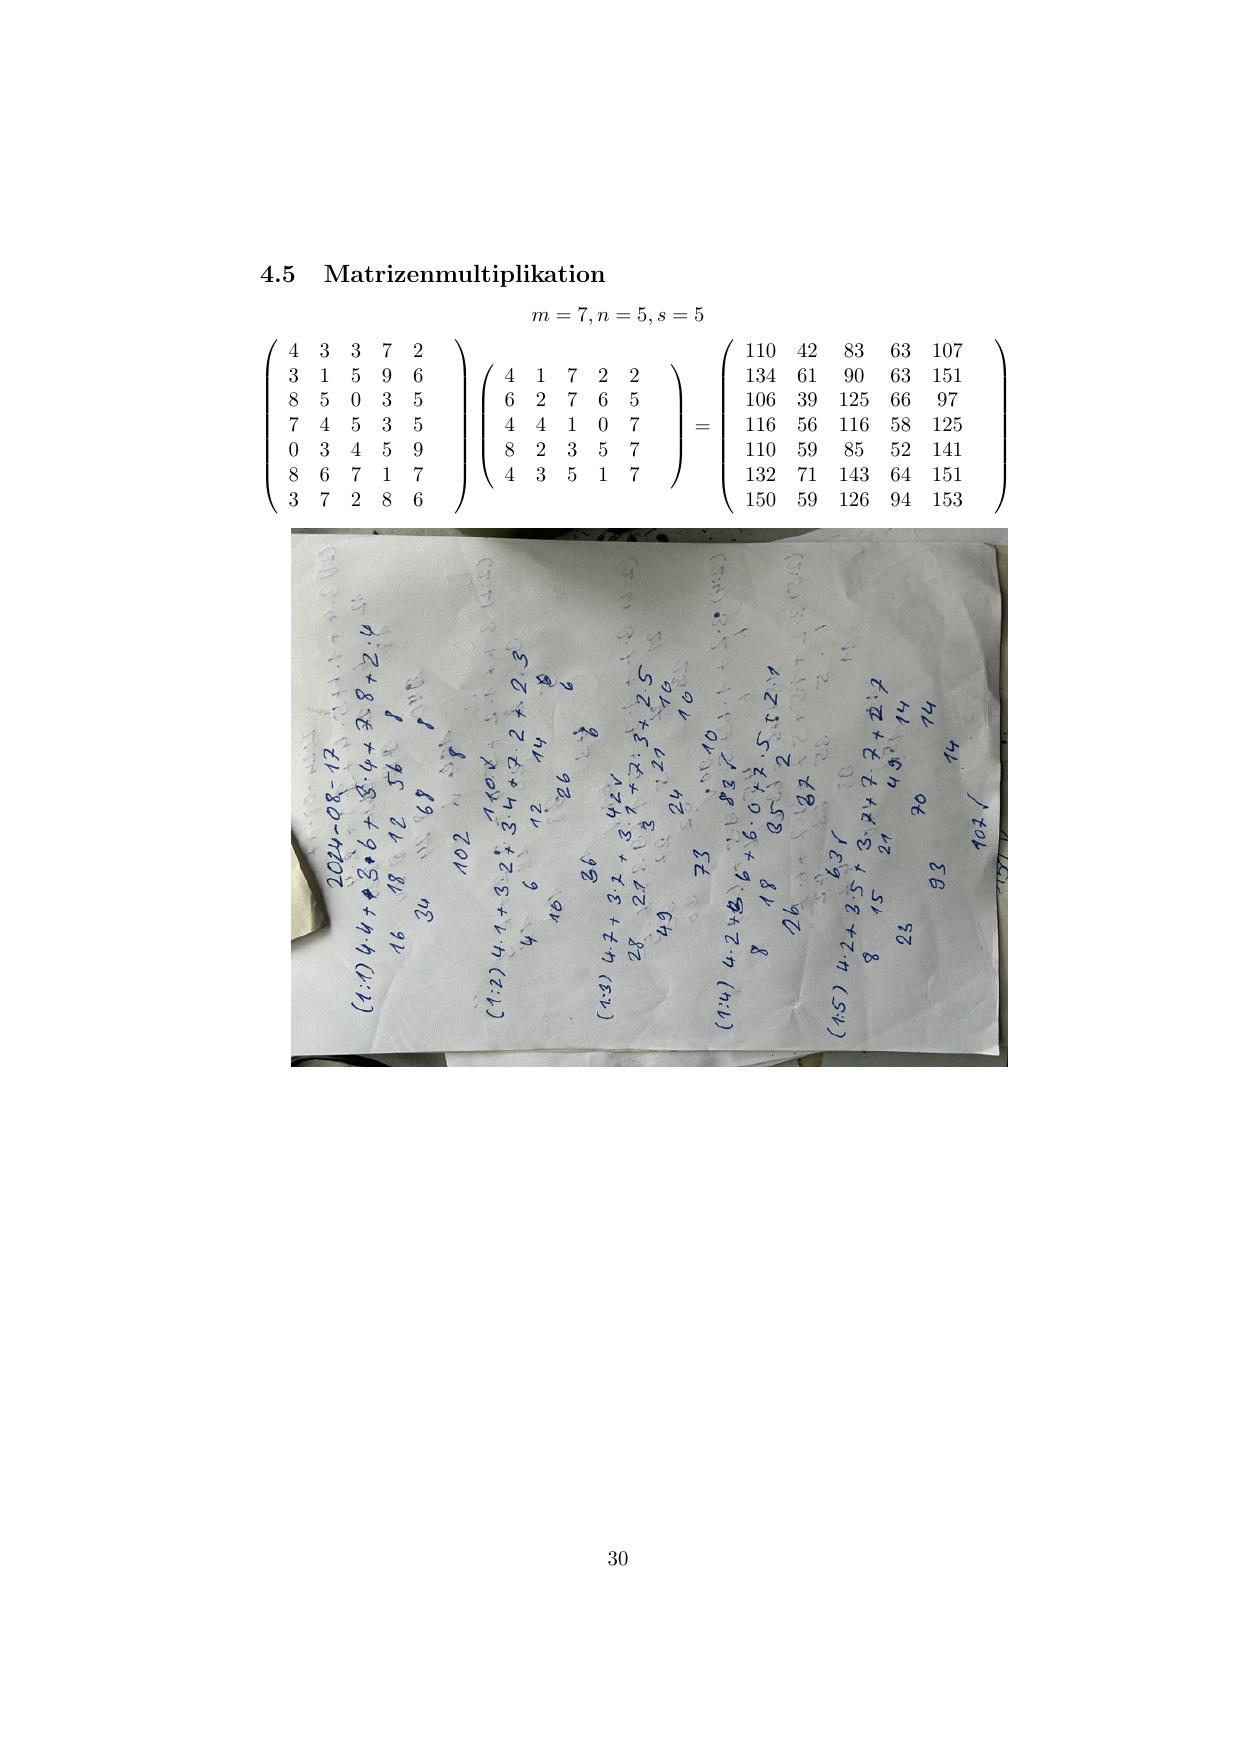 4.5 Matrizenmultiplikation
m = 7, n = 5, s = 5
4 3 3 7 2
3 1 5 9 6
8 5 0 3 5
7 4 5 3 5
0 3 4 5 9
8 6 7 1 7
3 7 2 8 6
4 1 7 2 2
6 2 7 6 5
4 4 1 0 7
8 2 3 5 7
4 3 5 1 7
=
110 42 83 63 107
134 61 90 63 151
106 39 125 66 97
116 56 116 58 125
110 59 85 52 141
132 71 143 64 151
150 59 126 94 153
2024-08-17
(1:1) 4·4+3·6+3·4+7·8+2·4
16 18 12 56 8
34 68 8
102 8
110 ✓
(1:2) 4·1+3·2+3·4+7·2+2·3
4 6 12 14 6
10 26 6
36 6
42 ✓
(1:3) 4·7+3·7+3·1+7·3+2·5
28 21 3 21 10
49 24 10
73 10
83 ✓
(1:4) 4·2+3·6+6·0+7·5+2·1
8 18 35 2
26 37
63 ✓
(1:5) 4·2+3·5+3·7+7·7+2·7
8 15 21 49 14
23 70 14
93 14
107 ✓
30